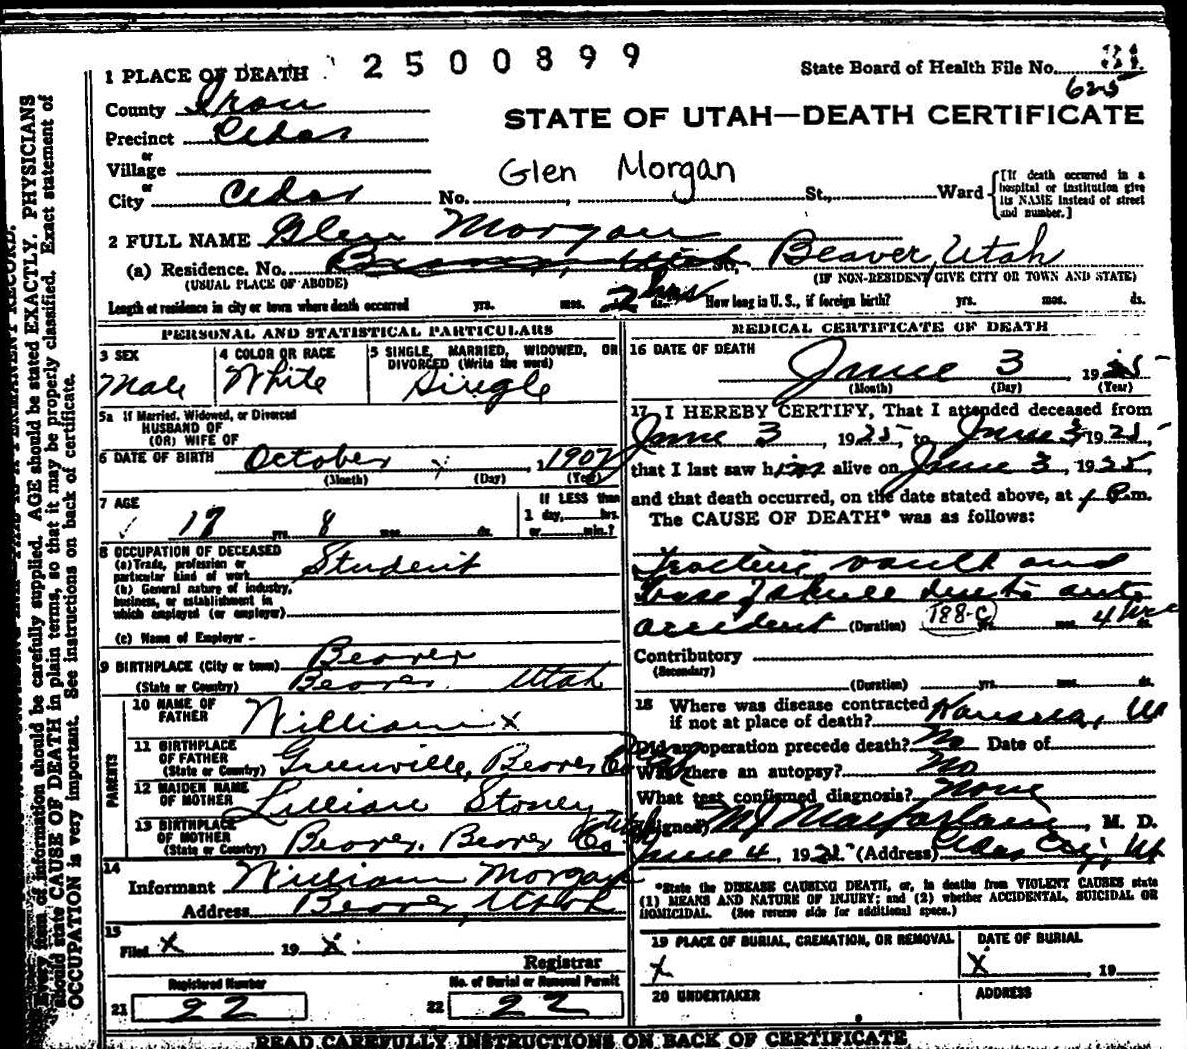 1 PLACE OF DEATH
2500899
State Board of Health File No.
625
County Iron
STATE OF UTAH—DEATH CERTIFICATE
Precinct Cedar
or
Village
Glen Morgan
or
City Cedar No. St., Ward
[If death occurred in a hospital or institution give its NAME instead of street and number.]
2 FULL NAME Glen Morgan
(a) Residence. No. Beaver, Utah St., Beaver, Utah
(USUAL PLACE OF ABODE)
(IF NON-RESIDENT GIVE CITY OR TOWN AND STATE)
Length of residence in city or town where death occurred yrs. mos. 2 hrs ds. How long in U. S., if foreign birth? yrs. mos. ds.
PERSONAL AND STATISTICAL PARTICULARS
3 SEX
Male
4 COLOR OR RACE
White
5 SINGLE, MARRIED, WIDOWED, OR DIVORCED (Write the word)
Single
5a If Married, Widowed, or Divorced
HUSBAND OF
(OR) WIFE OF
6 DATE OF BIRTH October , 1907
(Month) (Day) (Year)
7 AGE
17 yrs. 8 mos. ds.
If LESS than
1 day, hrs.
or min.?
8 OCCUPATION OF DECEASED
(a) Trade, profession or
particular kind of work Student
(b) General nature of industry,
business, or establishment in
which employed (or employer)
(c) Name of Employer -
9 BIRTHPLACE (City or town) Beaver
(State or Country) Beaver Utah
PARENTS
10 NAME OF
FATHER William X
11 BIRTHPLACE
OF FATHER
(State or Country) Greenville, Beaver Co Utah
12 MAIDEN NAME
OF MOTHER Lillian Stoney
13 BIRTHPLACE
OF MOTHER
(State or Country) Beaver, Beaver Co Utah
14
Informant William Morgan
Address Beaver, Utah
15
Filed X 19 X
Registrar
Registered Number
21 22
No. of Burial or Removal Permit
22 22
MEDICAL CERTIFICATE OF DEATH
16 DATE OF DEATH
June 3 1925
(Month) (Day) (Year)
17 I HEREBY CERTIFY, That I attended deceased from
June 3, 1925, to June 3, 1925,
that I last saw him alive on June 3, 1925,
and that death occurred, on the date stated above, at P.m.
The CAUSE OF DEATH* was as follows:
Fracture vault and
base of skull due to auto
accident (Duration) 188-C yrs. mos. 4 hrs ds.
Contributory
(Secondary)
(Duration) yrs. mos. ds.
18 Where was disease contracted
if not at place of death? Kanarra, Ut
Did an operation precede death? No Date of
Was there an autopsy? No
What test confirmed diagnosis? None
(Signed) M J Macfarlane, M. D.
June 4, 1925 (Address) Cedar City, Ut
*State the DISEASE CAUSING DEATH, or, in deaths from VIOLENT CAUSES state
(1) MEANS AND NATURE OF INJURY; and (2) whether ACCIDENTAL, SUICIDAL OR
HOMICIDAL. (See reverse side for additional space.)
19 PLACE OF BURIAL, CREMATION, OR REMOVAL
X
DATE OF BURIAL
X , 19
20 UNDERTAKER
ADDRESS
READ CAREFULLY INSTRUCTIONS ON BACK OF CERTIFICATE
Every item of information should be carefully supplied. AGE should be stated EXACTLY. PHYSICIANS
should state CAUSE OF DEATH in plain terms, so that it may be properly classified. Exact statement of
OCCUPATION is very important. See instructions on back of certificate.